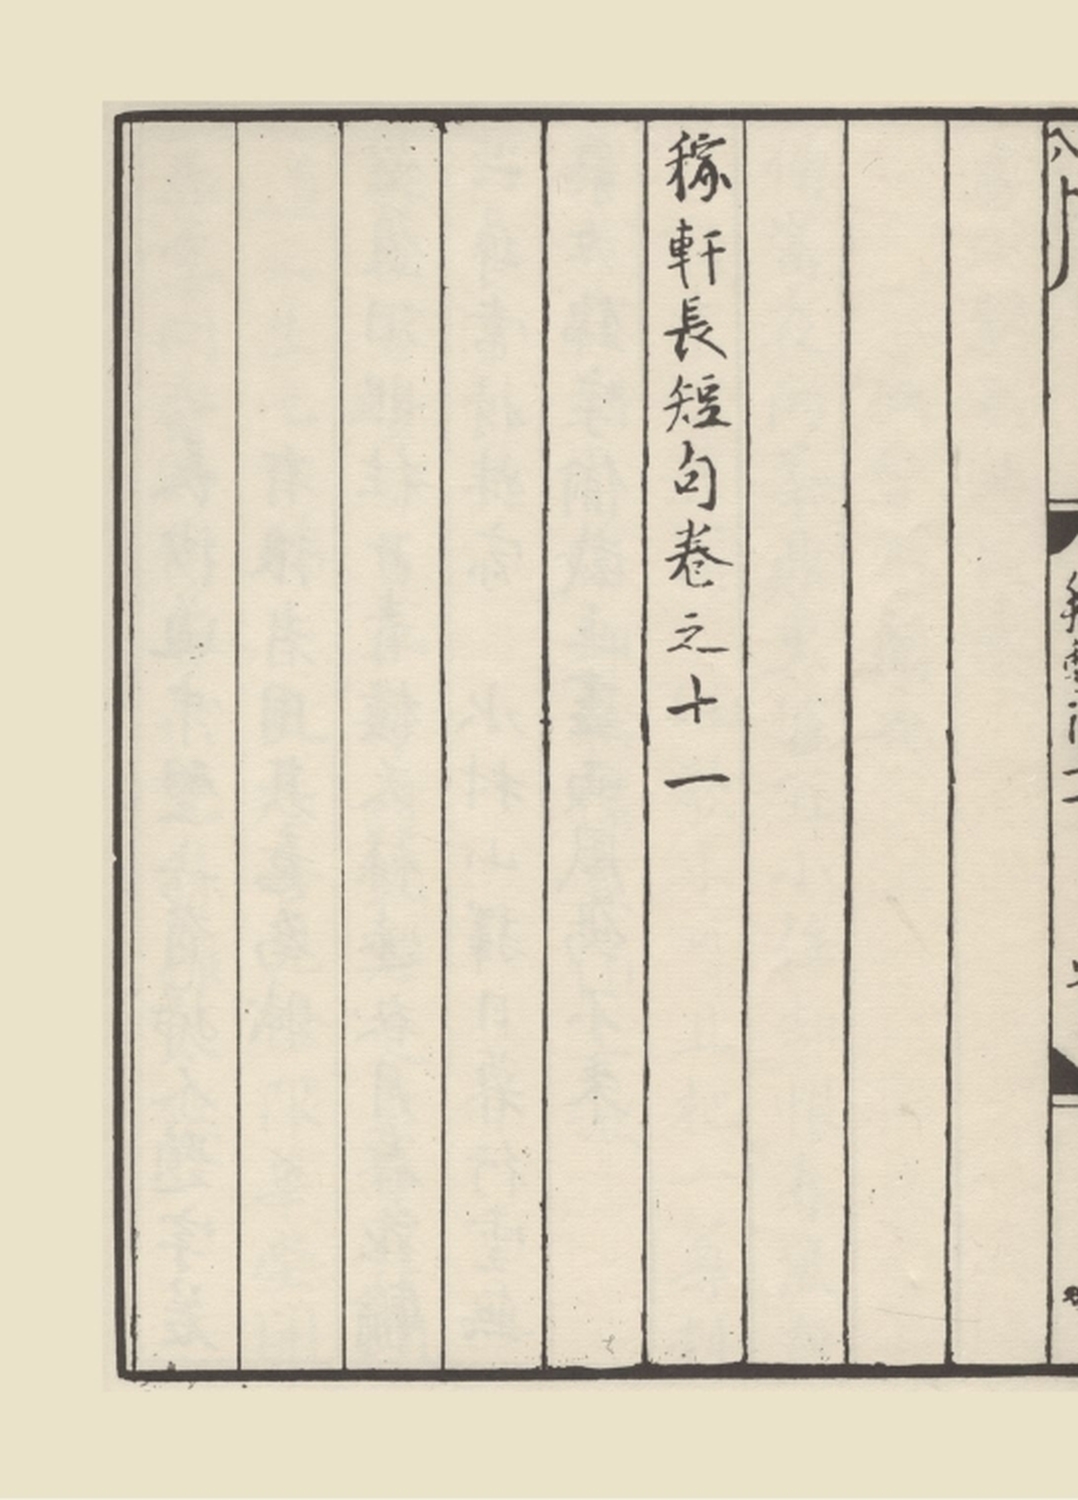 稼軒長短句卷之十一